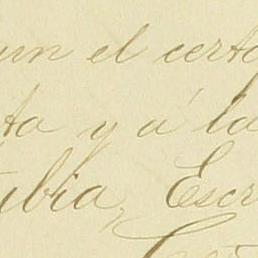 un el certa
ta y á la
tubia, Escr